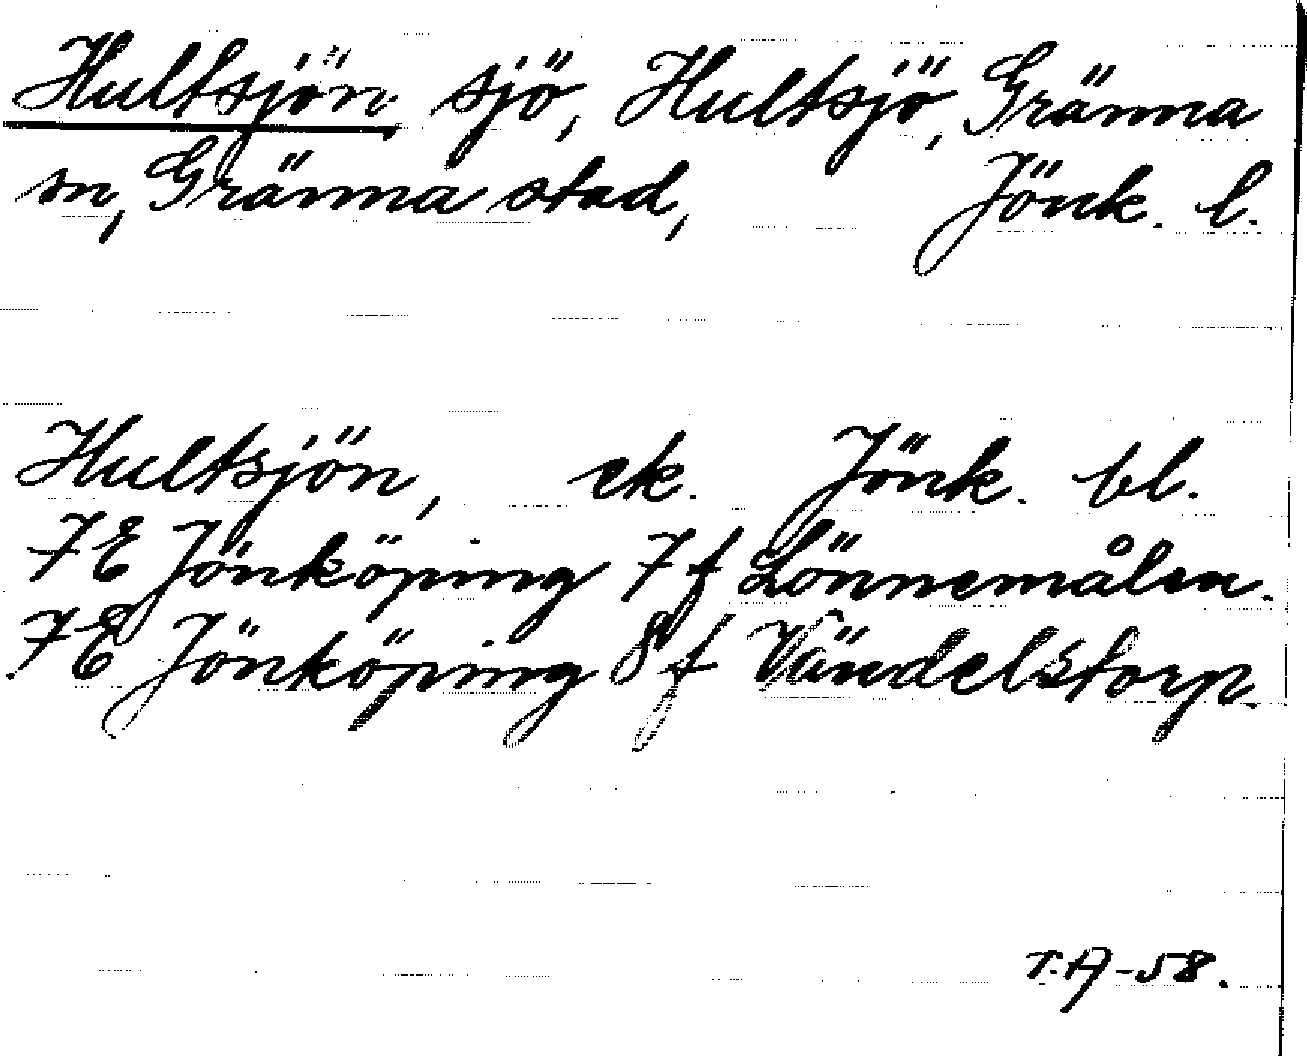 Hultsjön sjö, Hultsjö, Gränna
sn, Gränna stad, Jönk. l.
Hultsjön, ek. Jönk. bl.
7E Jönköping 7f Lönnemålen.
7E Jönköping 8f Vändelstorp
T.A-58.